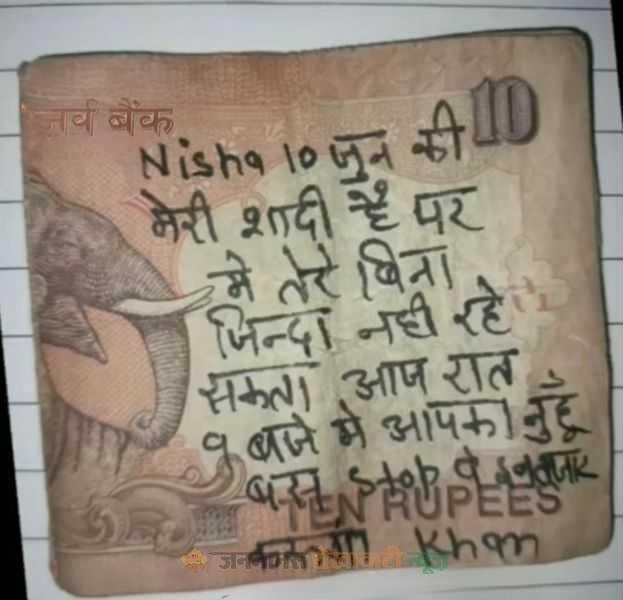 र्व बैंक
10
Nisha 10 जुन की
मेरी शादी है पर
मे तेरे बिना
जिन्दा नही रहे
सकता आज रात
9 बजे मे आपका नुहूँ
बस stop पे इन्तजार
TEN RUPEES
करूंगा Khan
न्यूज